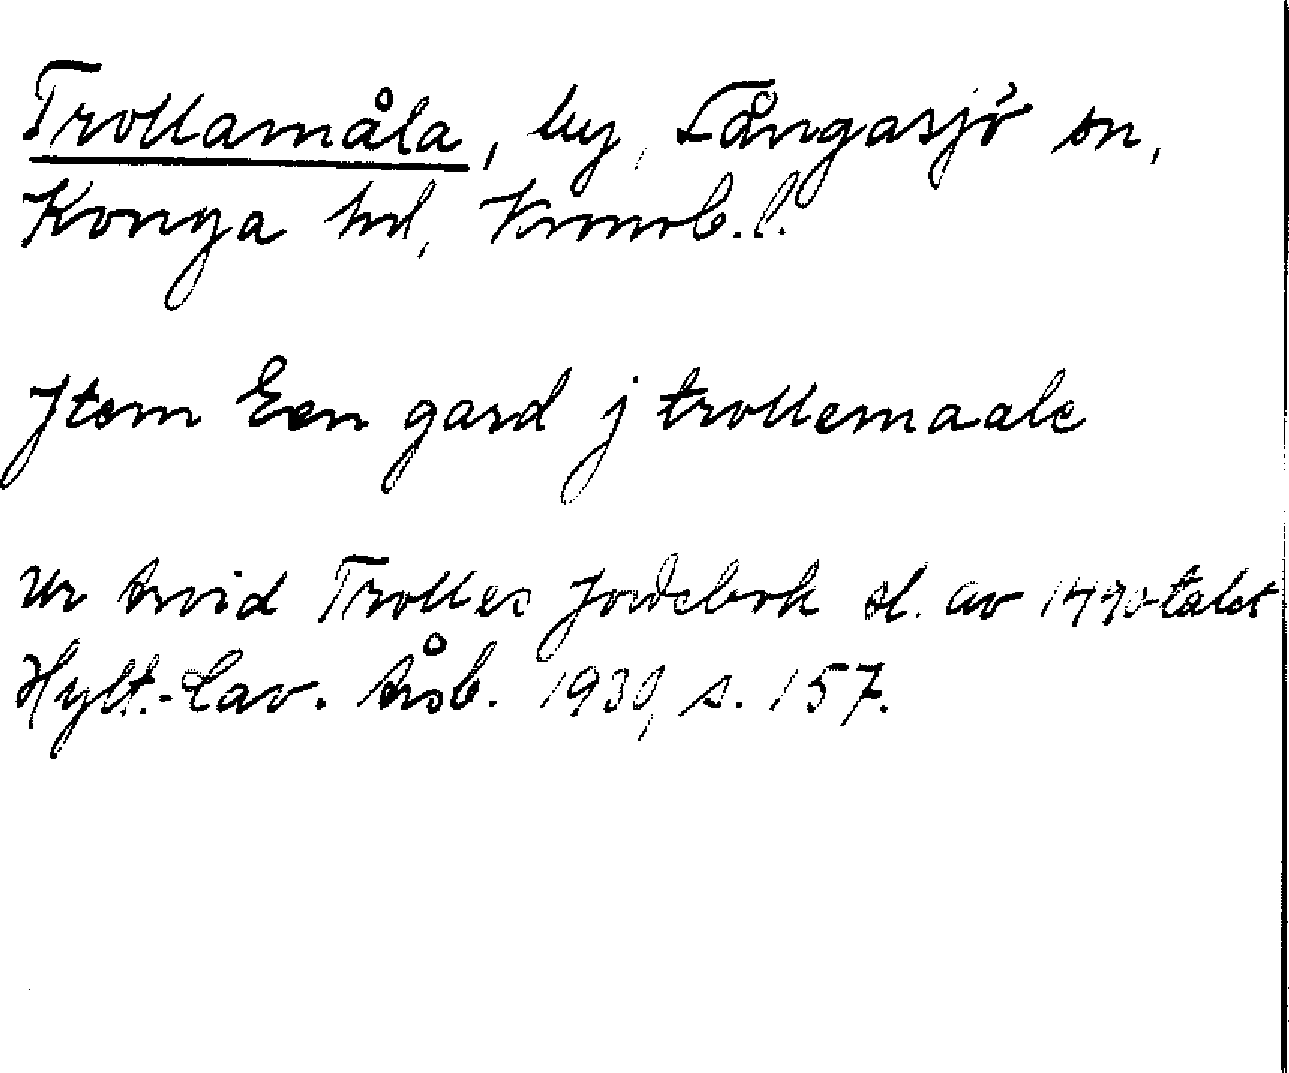 Trollamåla, by, Långasjö sn,
Konga hd, Kronob. l.
Jtem Een gard j trollemaale
Ur Arvid Trolles Jordebok sl. av 1490-talet
Hylt.-Cav. Årsb. 1930, s. 157.